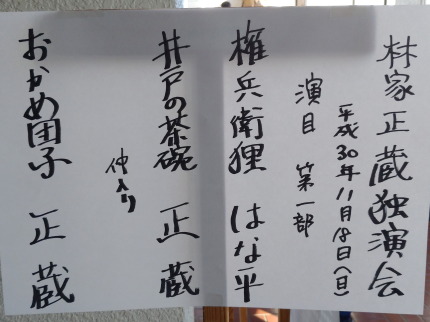 林家正蔵独演会
平成30年11月18日(日)
演目 第一部
権兵衛狸 はな平
井戸の茶碗 正蔵
仲入り
おかめ団子 正蔵